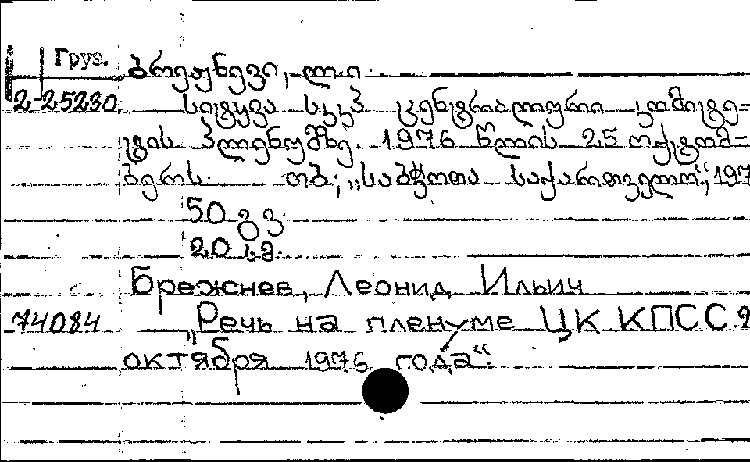 Груз.
ბრეჟნევი, ლ. ი.
2-25230
სიტყვა სკკპ ცენტრალური კომიტე-
ტის პლენუმზე. 1976 წლის 25 ოქტომ-
ბერს. თბ; „საბჭოთა საქართველო“, 197
50 გვ.
20 სმ.
Брежнев, Леонид Ильич
74084
„Речь на пленуме ЦК КПСС 2
октября 1976 года“.